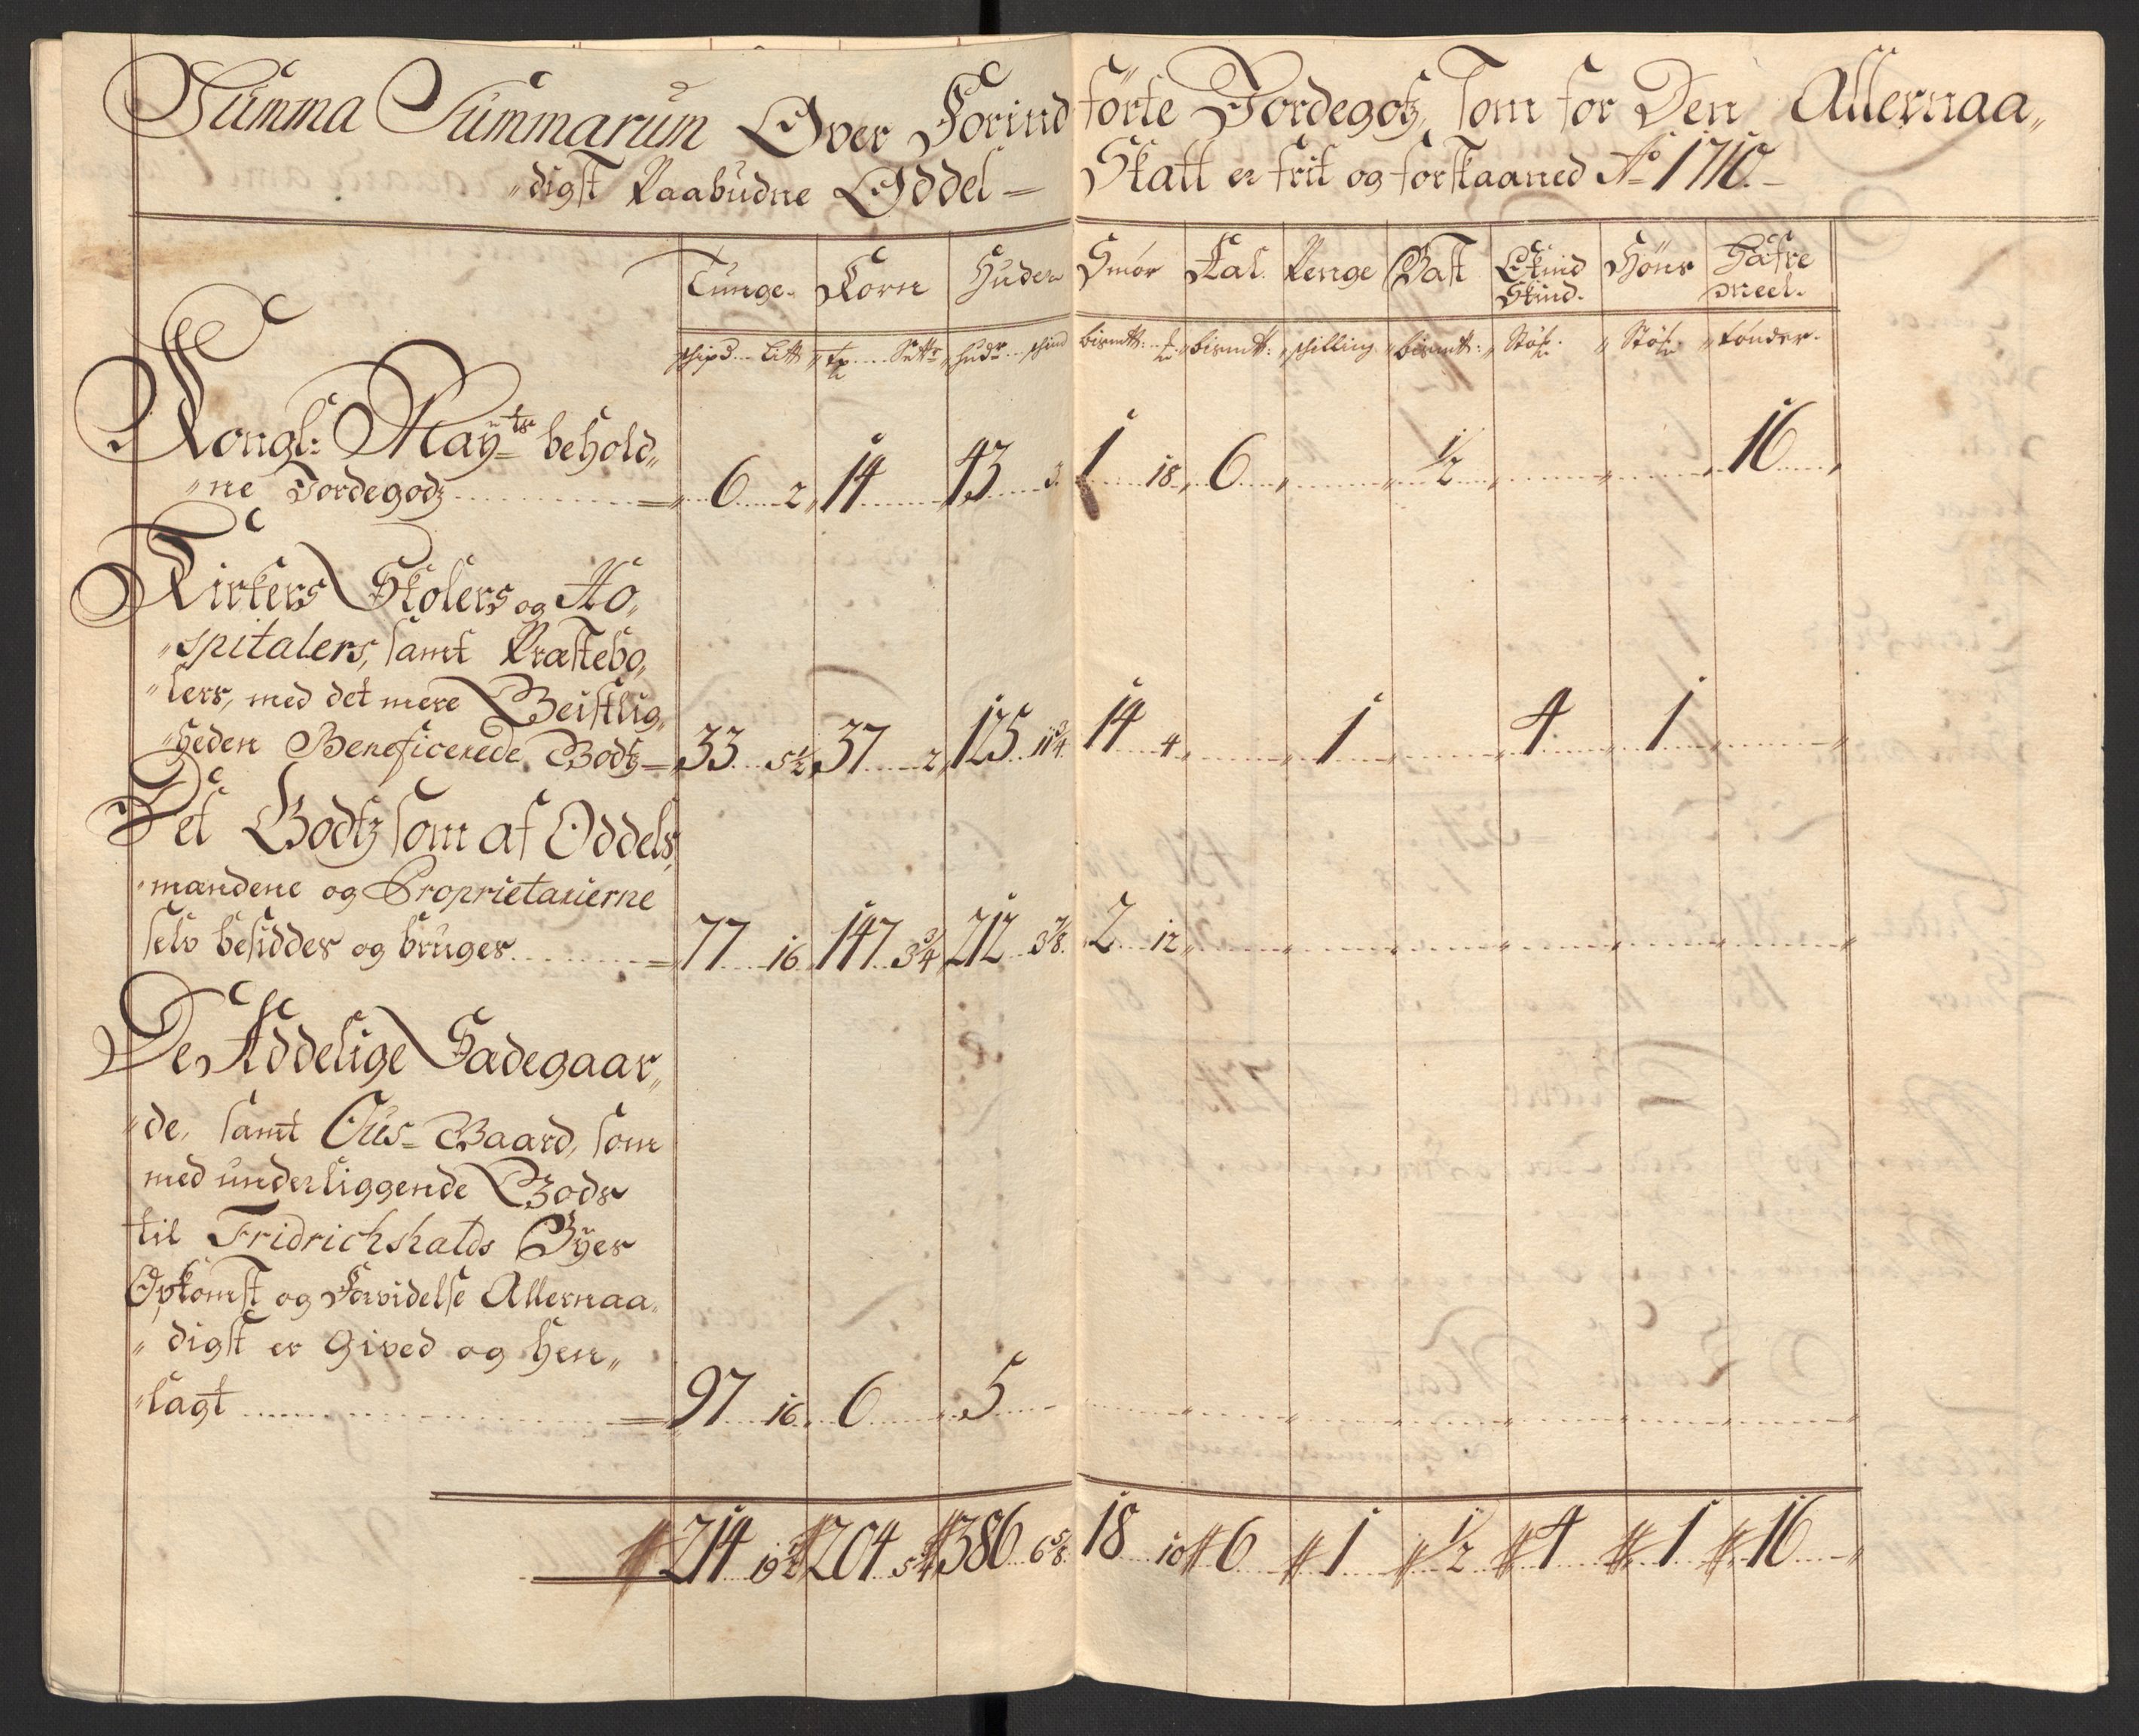 Summa Summarum Over Forind førte Jordegotz, som for Den Allernaa„
„digst Paabudne Oddel = Skatt er frit og forskaaned Aō 1710.
Tunge. Korn Huder Smør Sal. Penge Bast Skind Høns Hafre
Skind. meel.
schipd Litt tr Sett hudr schind bismtt bismtt: schilling bismtt: Støk. Støk tønder.
Kongl: Mayts behold„
„ne Jordegodz = 6 2 14 43 3 1 18 6 1/2 16
Kirkers Skolers og Ho„
„spitalers, samt Præstebo„
„lers, med det mere Geistlig„
„heden Beneficerede Godtz = 33 5½ 37 2 125 11¾ 14 4 1 4 1
Det Godtz som af Oddels„
„mændene og Proprietarierne
selv besidder og bruger = 77 16 147 3¾ 212 3⅞ 2 12
De Addelige Sædegaar„
„de, samt Ous-Gaard, som
med underliggende Gods
til Fridrichshalds Byes
Opkomst og Forvidelse Allernaa„
„digst er Gived og hen„
„lagt = 97 16 6 5
214 19½ 204 5¾ 386 6⅝ 18 10 6 1 1/2 4 1 16